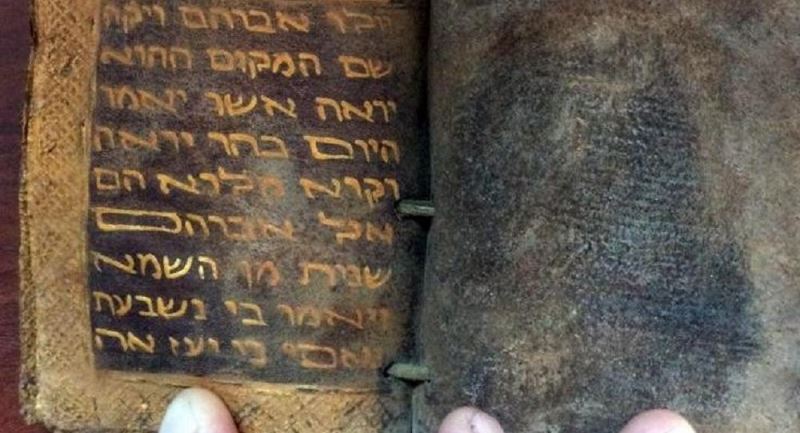 אברהם ויקח
שם המקום ההוא
יראה אשר יאמר
היום בהר יראה
וקרא מלרא הם
אל אברהם
שנית מן השמא
ויאמר בי נשבעת
כי יעז אה